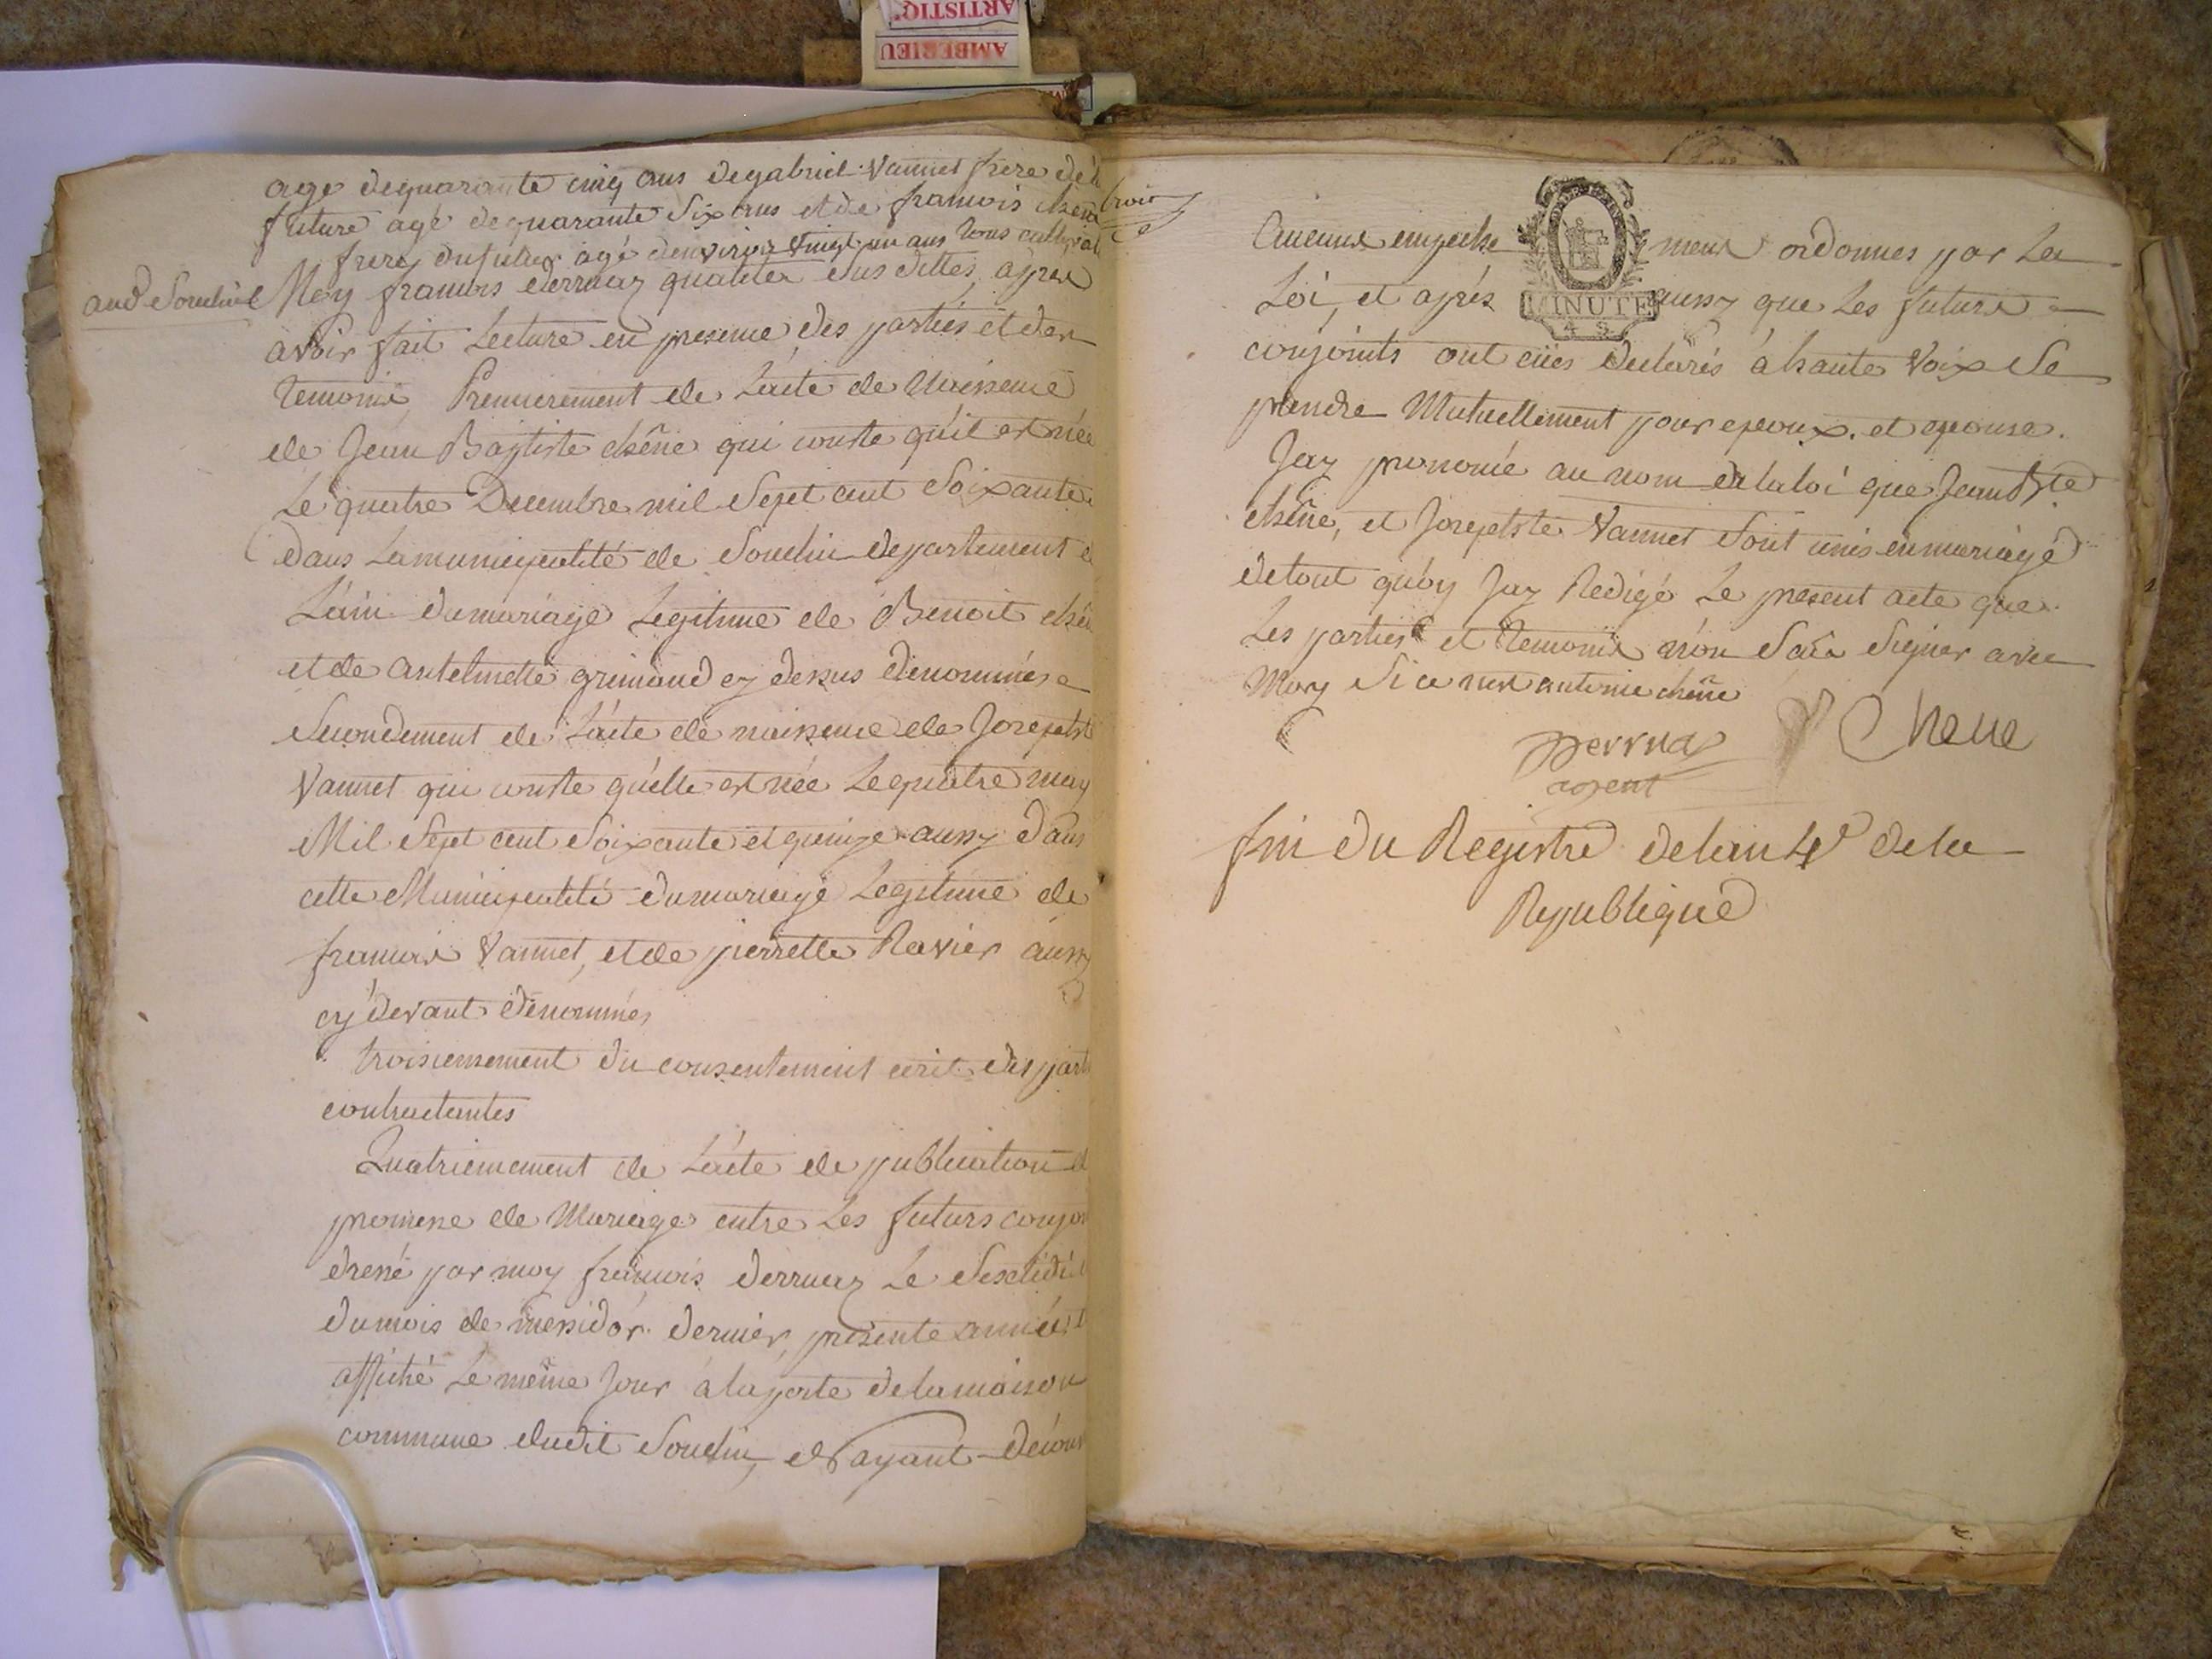 ARTISTIQ
AMBERIEU
age dequarante cinq ans degabriel Vannet frere dela
future agé dequarante Six ans et de francois chêne
frere du futur agé denviron Vingt un ans tous cultivat
aud Souclin Moy francois derruaz qualités Sus dittes, apres
avoir fait Lecture en presence des parties et des
temoins, Premierement de L'acte de Naissence
de Jean Baptiste chêne qui conste qu'il est née
Le quatre Decembre mil Sept cent Soixante
dans Lamunicipalité de Souclin departement d
L'ain du mariage Legitime de Benoit chên
et de antelmette grimaud cy dessus denommés
Secondement de L'acte de naissence de Josephte
Vannet qui conste qu'elle est née Le quatre may
Mil Sept cent Soixante et quinze aussy dans
cette Municipalité du mariage Legitime de
francois Vannet, et de pierrette Ravier aussy
cy devant denommés
troisiemement du consentement ecrit des parti
contractantes
Quatriemement de L'acte de publication d
promesse de Mariage entre Les futurs conjoi
dressé par moy francois derruaz Le Sextidi
du mois de messidor dernier, presente année
affiché Le même Jour a la porte de la maison
commune dudit Souclin, et n'ayant decouv
trois
Aucuns empeche mens ordonnes par La
Loi, et aprés MINUTE aussy que Les futurs
4 S
conjoints ont eües declarés a haute Voix Se
prendre Mutuellement pour epoux et epouse.
Jay prononcé au nom de la loi que Jean Bte
chêne, et Josephte Vannet Sont unis en mariage
de tout quoy Jay Redigé Le present acte que
Les parties et temoins n'on Scu Signer avec
Moy Si ce nest antoine chêne
Derruaz Chene
agent
fin du Registre de lan 4e de la
Republique